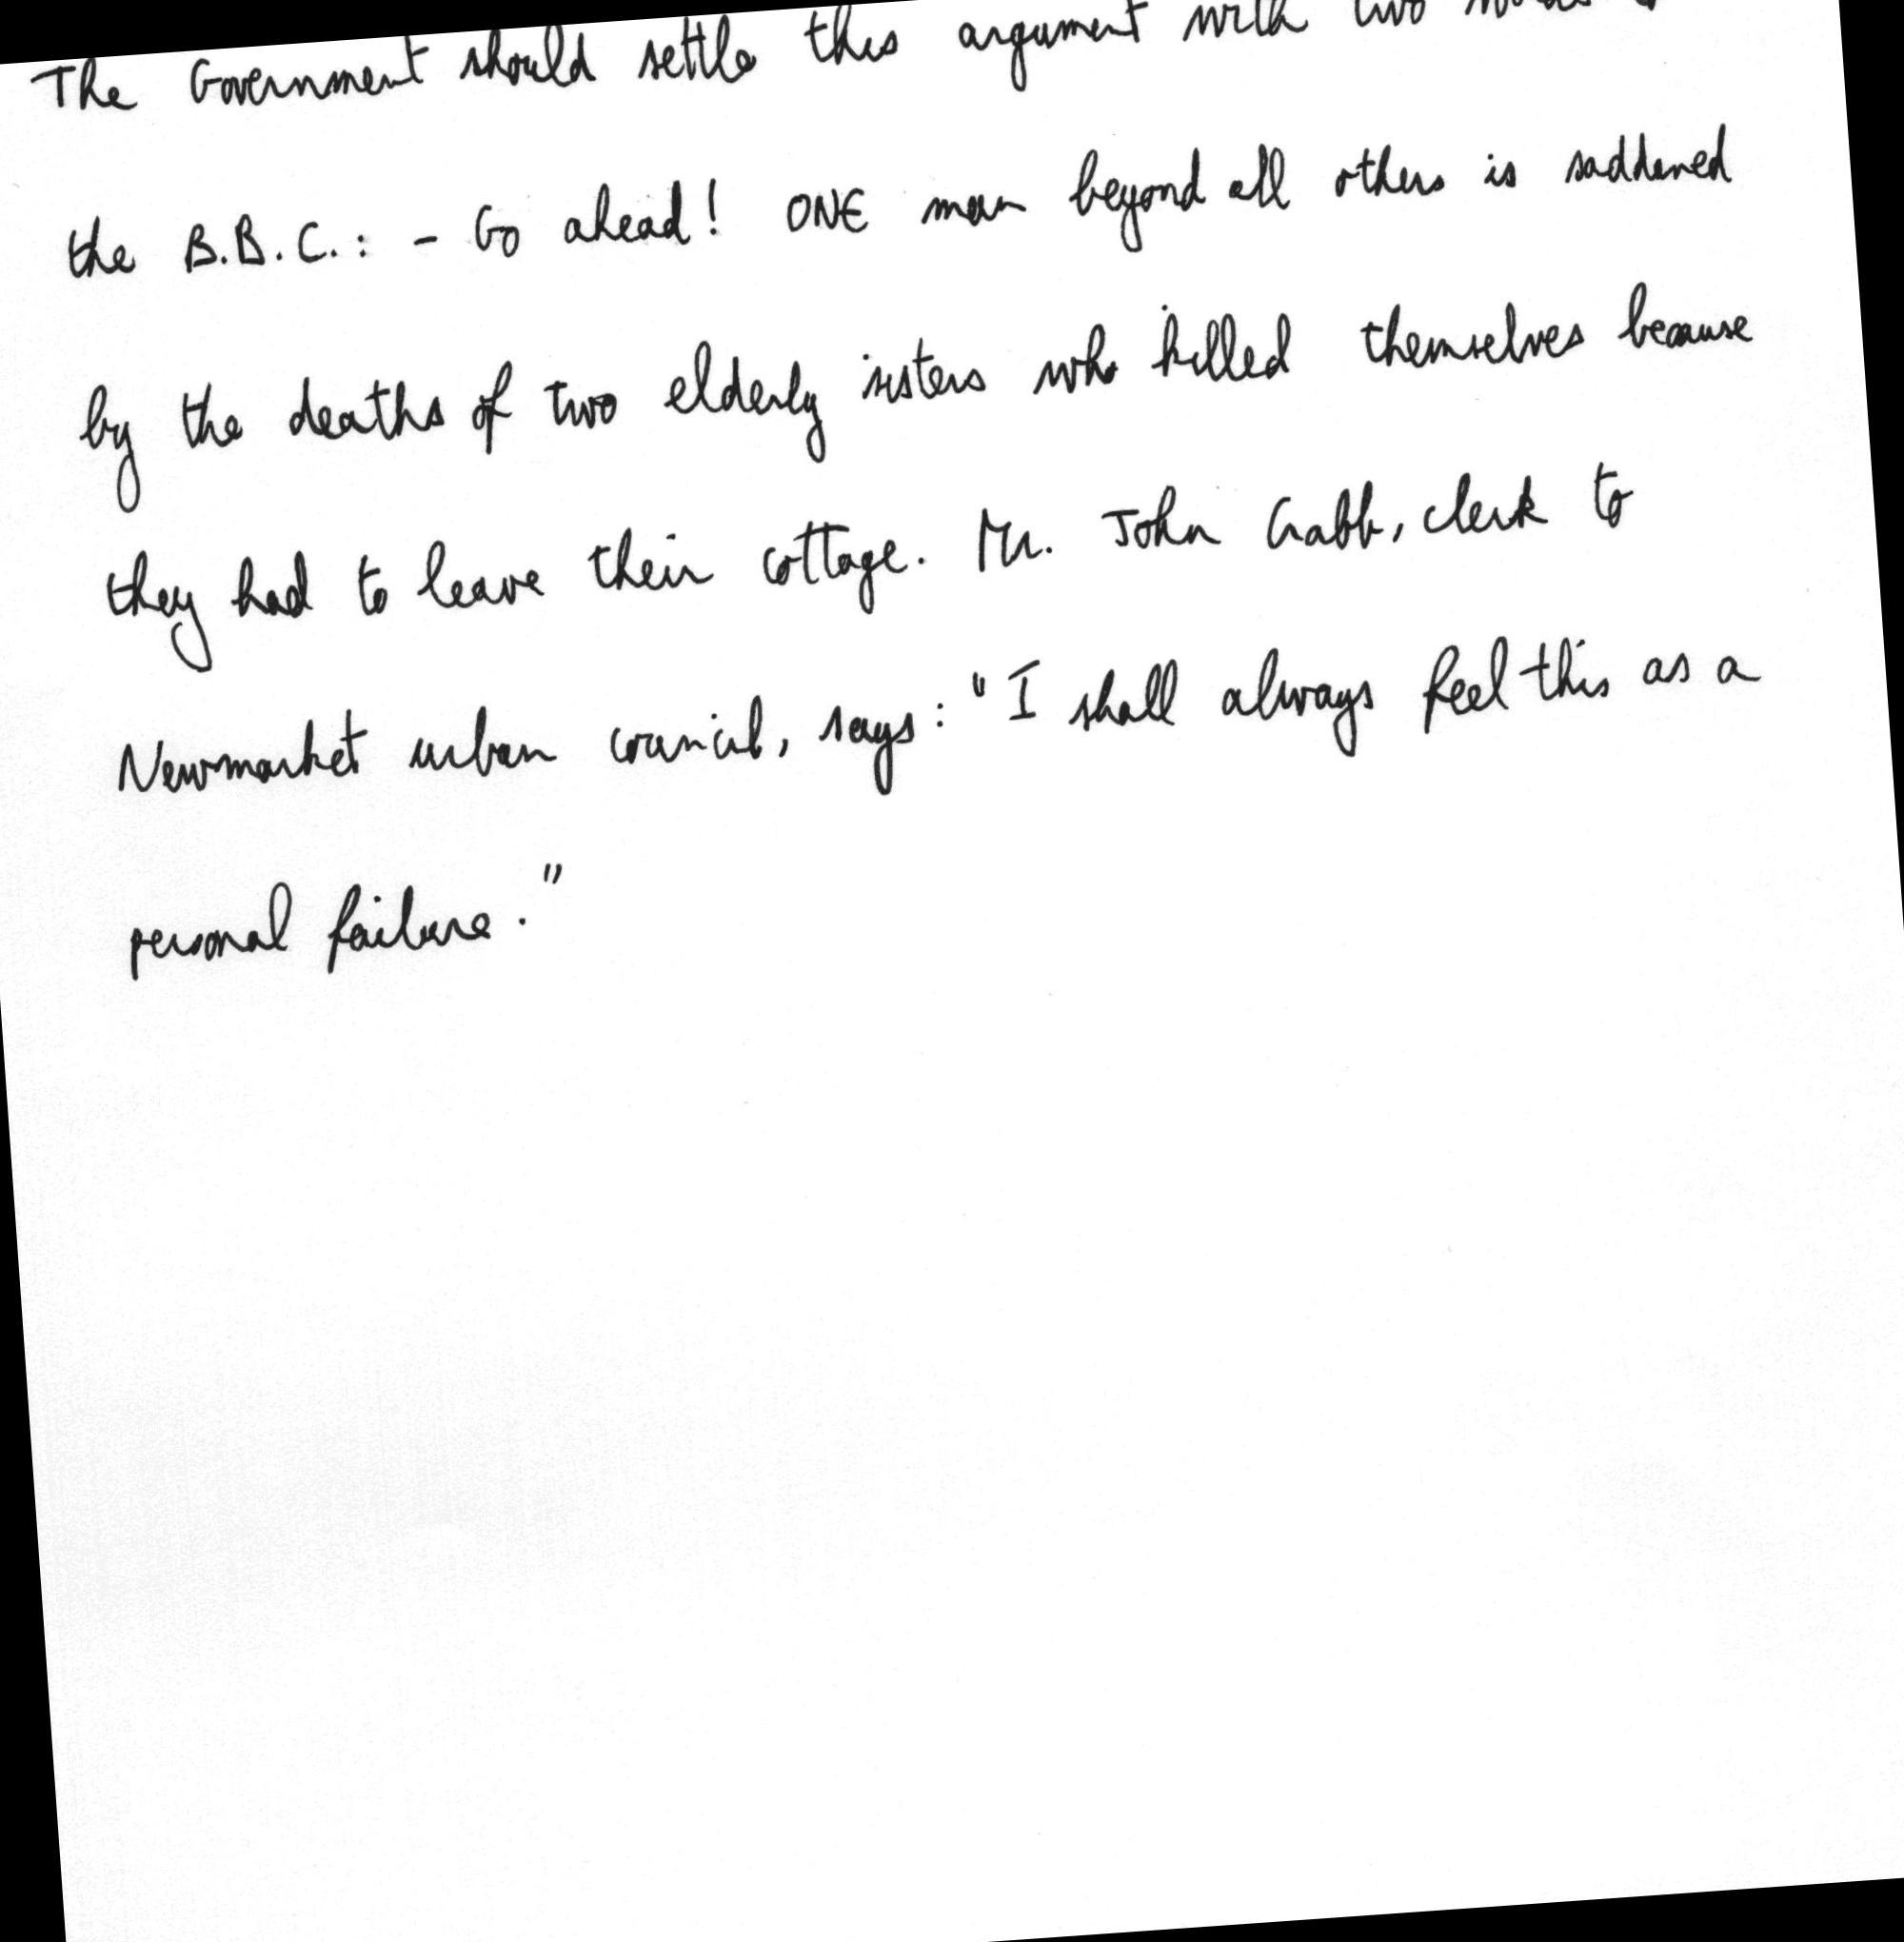 The Government should settle this argument with two
the B.B.C.: - Go ahead! ONE man beyond all others is saddened
by the deaths of two elderly sisters who killed themselves because
they had to leave their cottage. Mr. John Crabb, clerk to
Newmarket urban council, says: "I shall always feel this as a
personal failure."